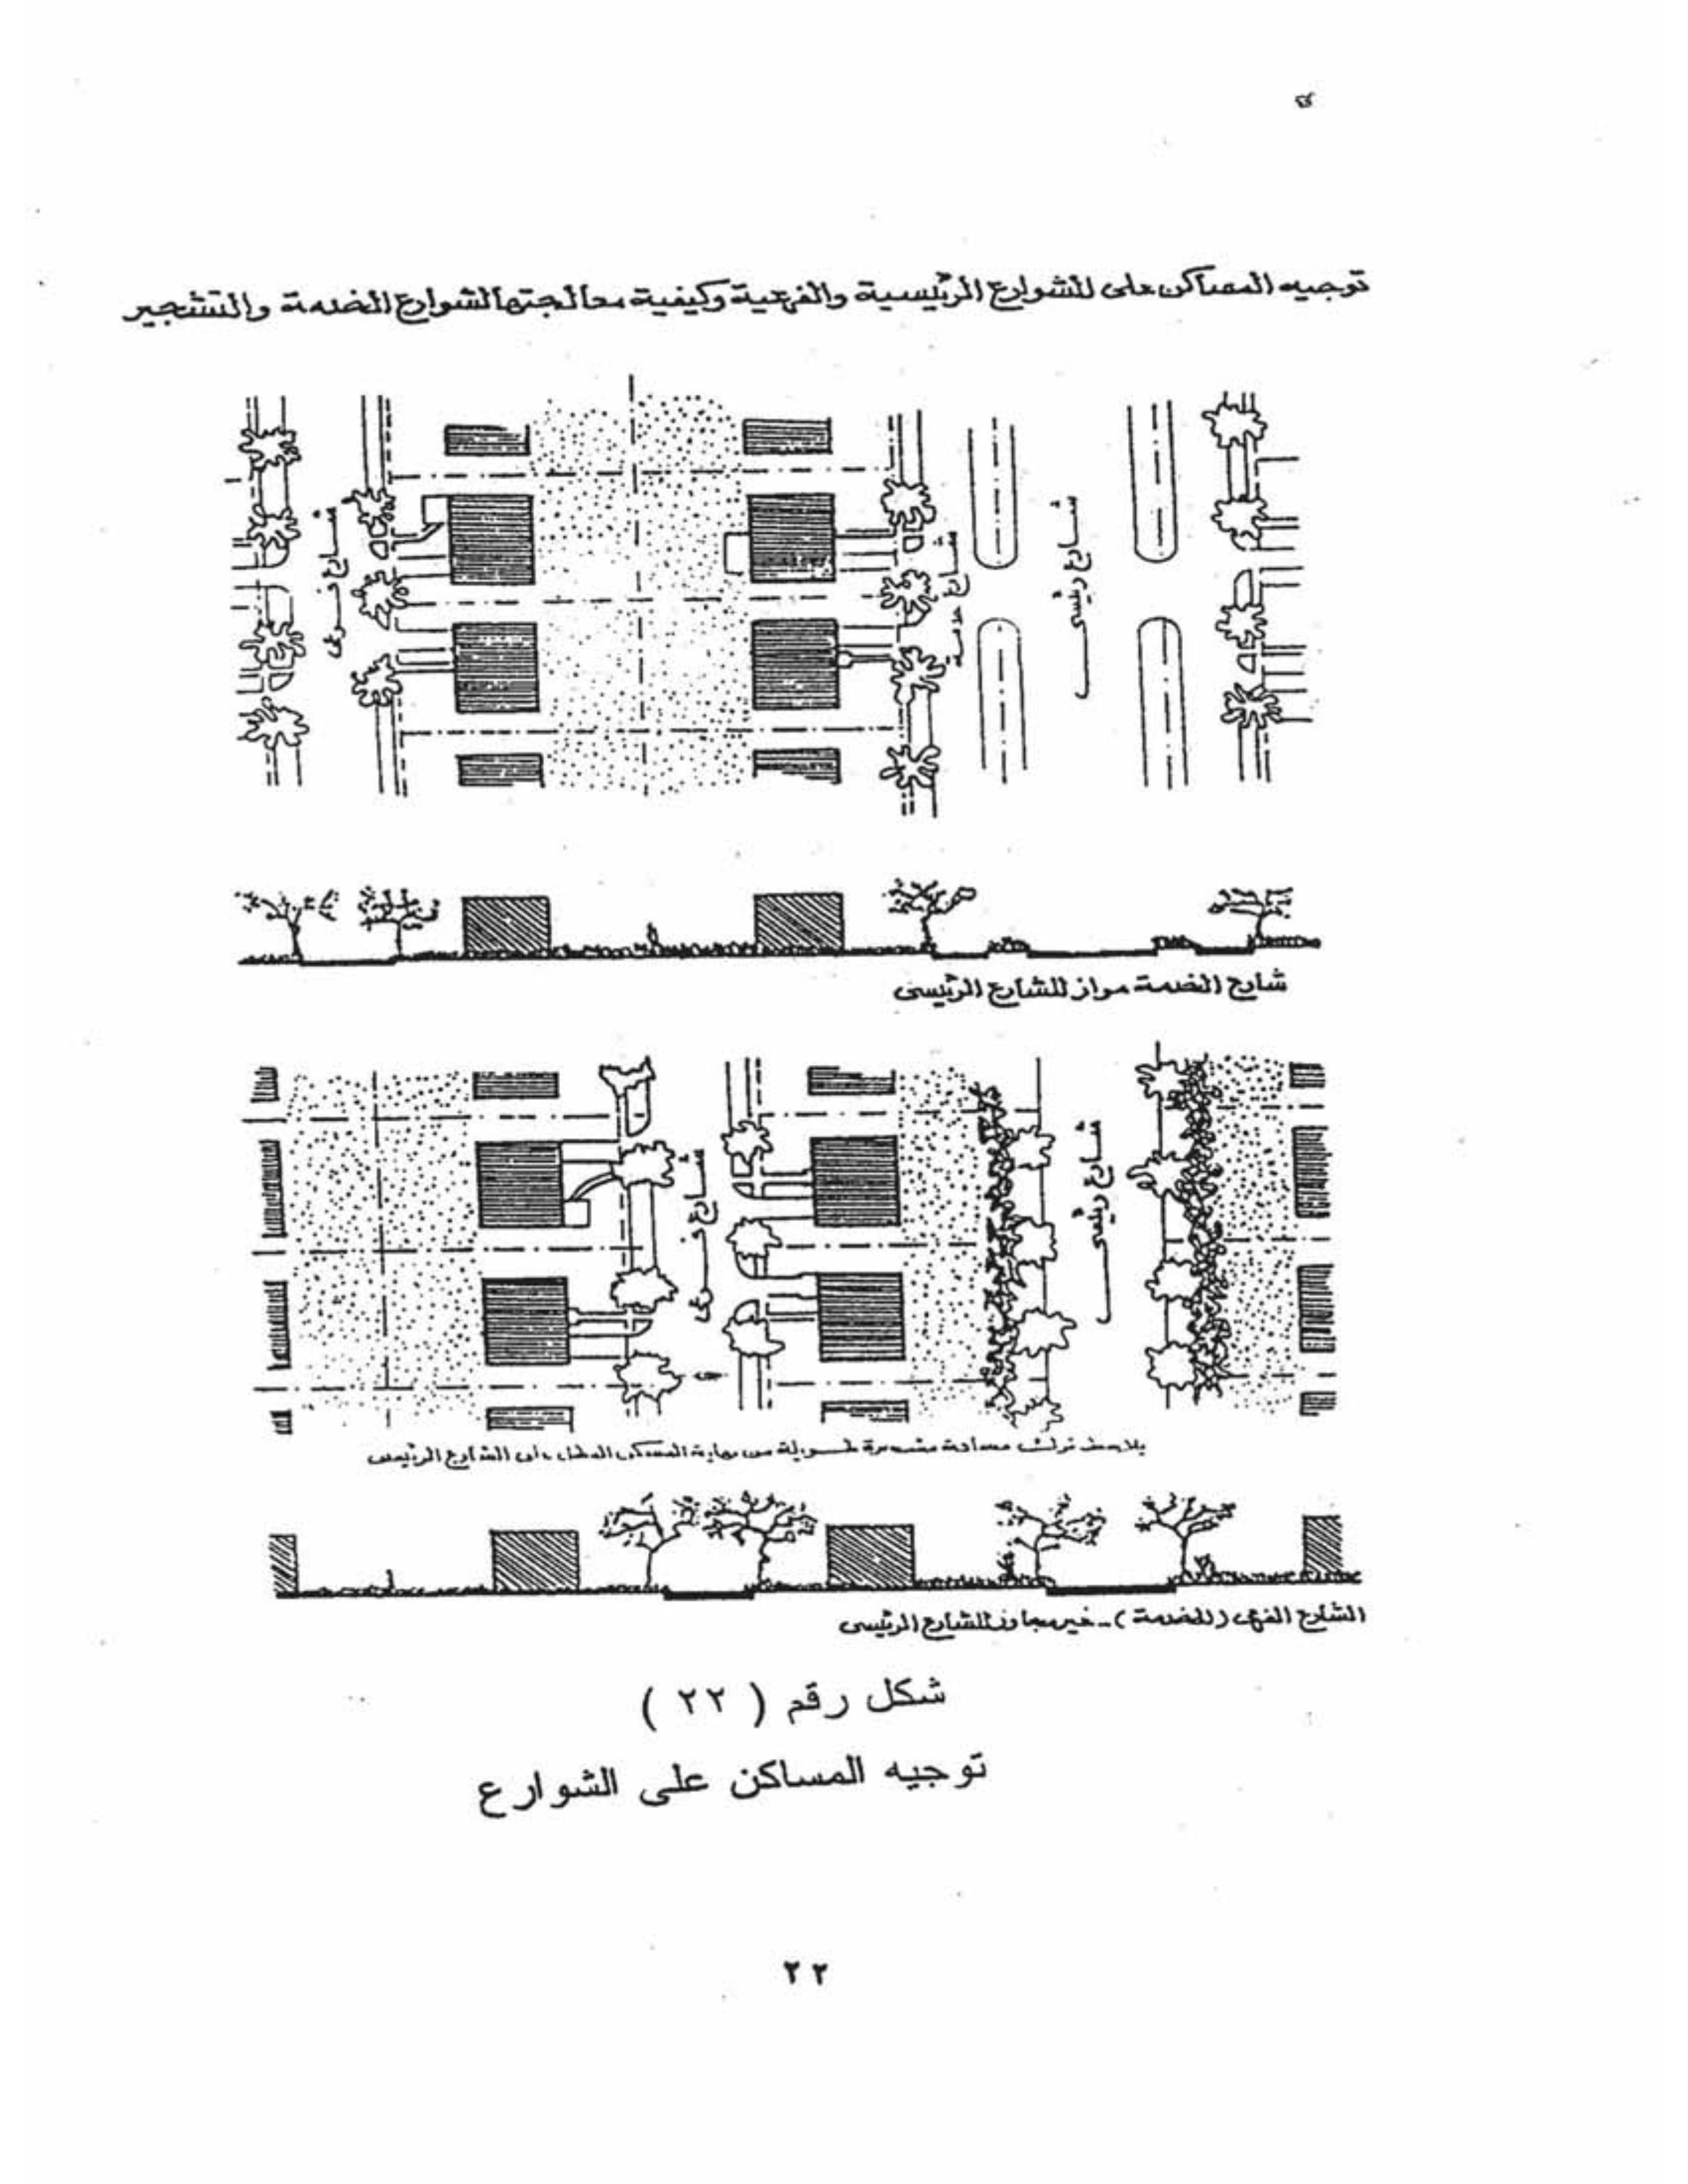 توجيه المساكن على الشوارع الرئيسية والفرعية وكيفية معالجتها لشوارع الخدمة والتشجير
شارع فرعى
شارع خدمة
شارع رئيسى
شارع الخدمة مواز للشارع الرئيسى
شارع فرعى
شارع رئيسى
يلاحظ ترك مساحة مشجرة طويلة من نهاية المسكن المطل على الشارع الرئيسى
الشارع الفرعى (للخدمة) - غير مجاور للشارع الرئيسى
شكل رقم ( ٢٢ )
توجيه المساكن على الشوارع
٢٢